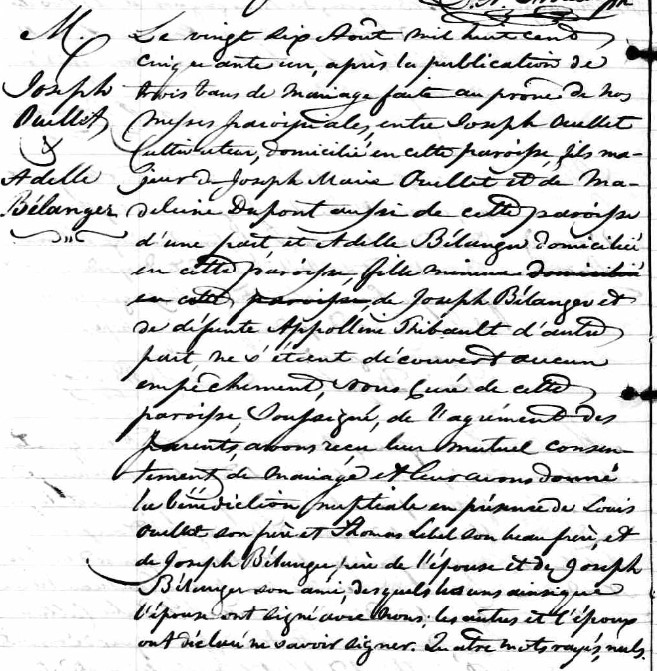 M.
Joseph
Ouillet
&
Adelle
Bélanger
Le vingt six Août mil huit cent
cinquante un, après la publication de
trois bans de mariage faite au prône de nos
messes paroissiales, entre Joseph Ouellet
Cultivateur, domicilié en cette paroisse, fils ma-
jeur de Joseph Marie Ouellet et de Ma-
deleine Dupont aussi de cette paroisse
d'une part, et Adelle Bélanger domiciliée
en cette paroisse, fille mineure domiciliée
en cette paroisse, de Joseph Bélanger et
de défunte Appolline Thibault d'autre
part, ne s'étient découvert aucun
empêchement, nous Curé de cette
paroisse, Soussigné, de l'agrément des
parents, avons reçu leur mutuel consen-
tement de mariage et leur avons donné
la bénédiction nuptiale en présence de Louis
Ouellet son frère et Thomas Lebel son beau frère, et
de Joseph Bélanger père de l'épouse et de Joseph
Bélanger son ami, desquels les uns ainsi que
l'épouse ont signé avec nous; les autres et l'époux
ont déclaré ne savoir signer. Quatre mots rayés nuls.